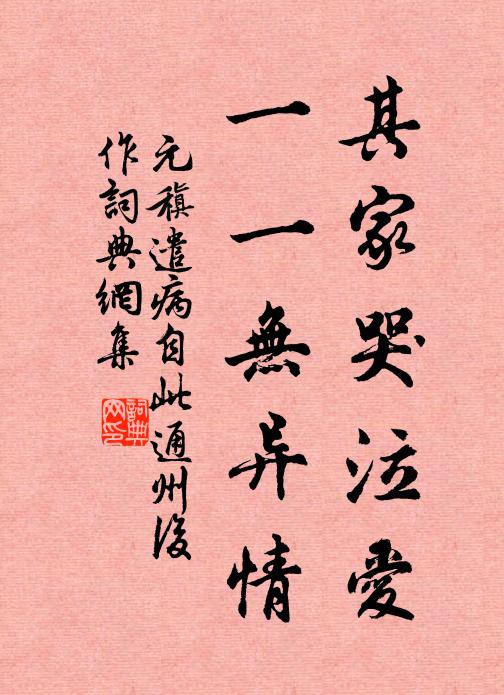 其家哭泣愛
一一無异情
元稹遣病自此通州後
作詞典網集
詞典网印